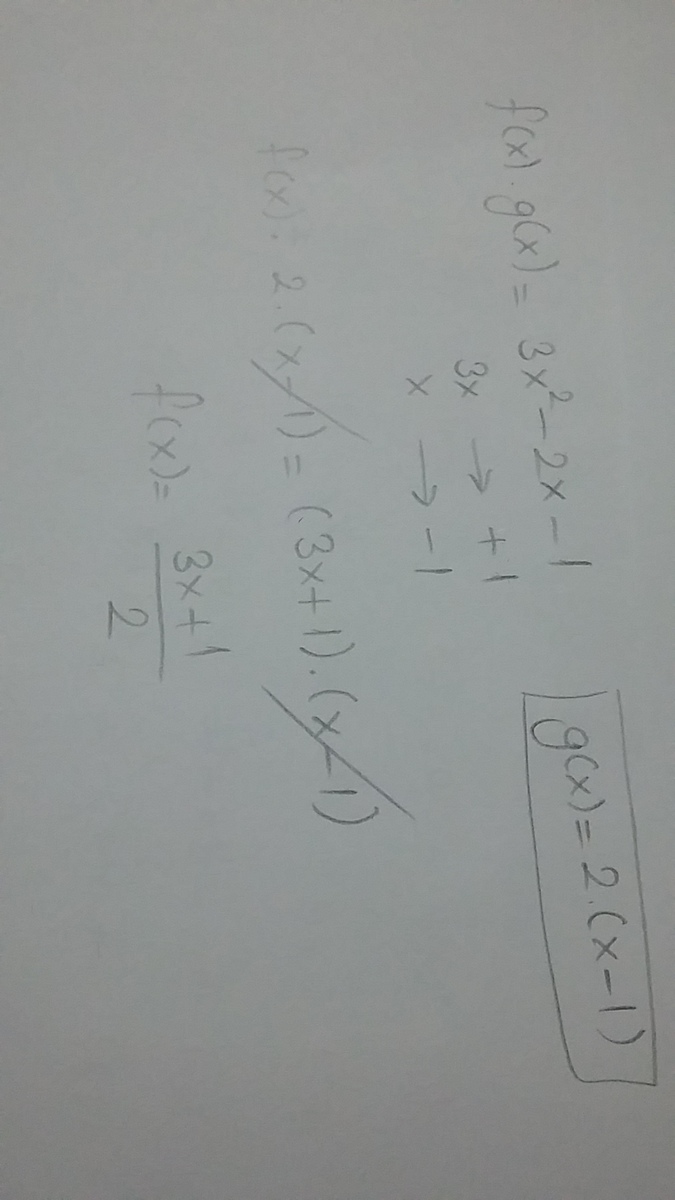 f(x) . g(x) = 3x² - 2x - 1
3x → +1
x → -1
g(x) = 2.(x-1)
f(x). 2.(x-1) = (3x+1).(x-1)
f(x) = 3x+1
2